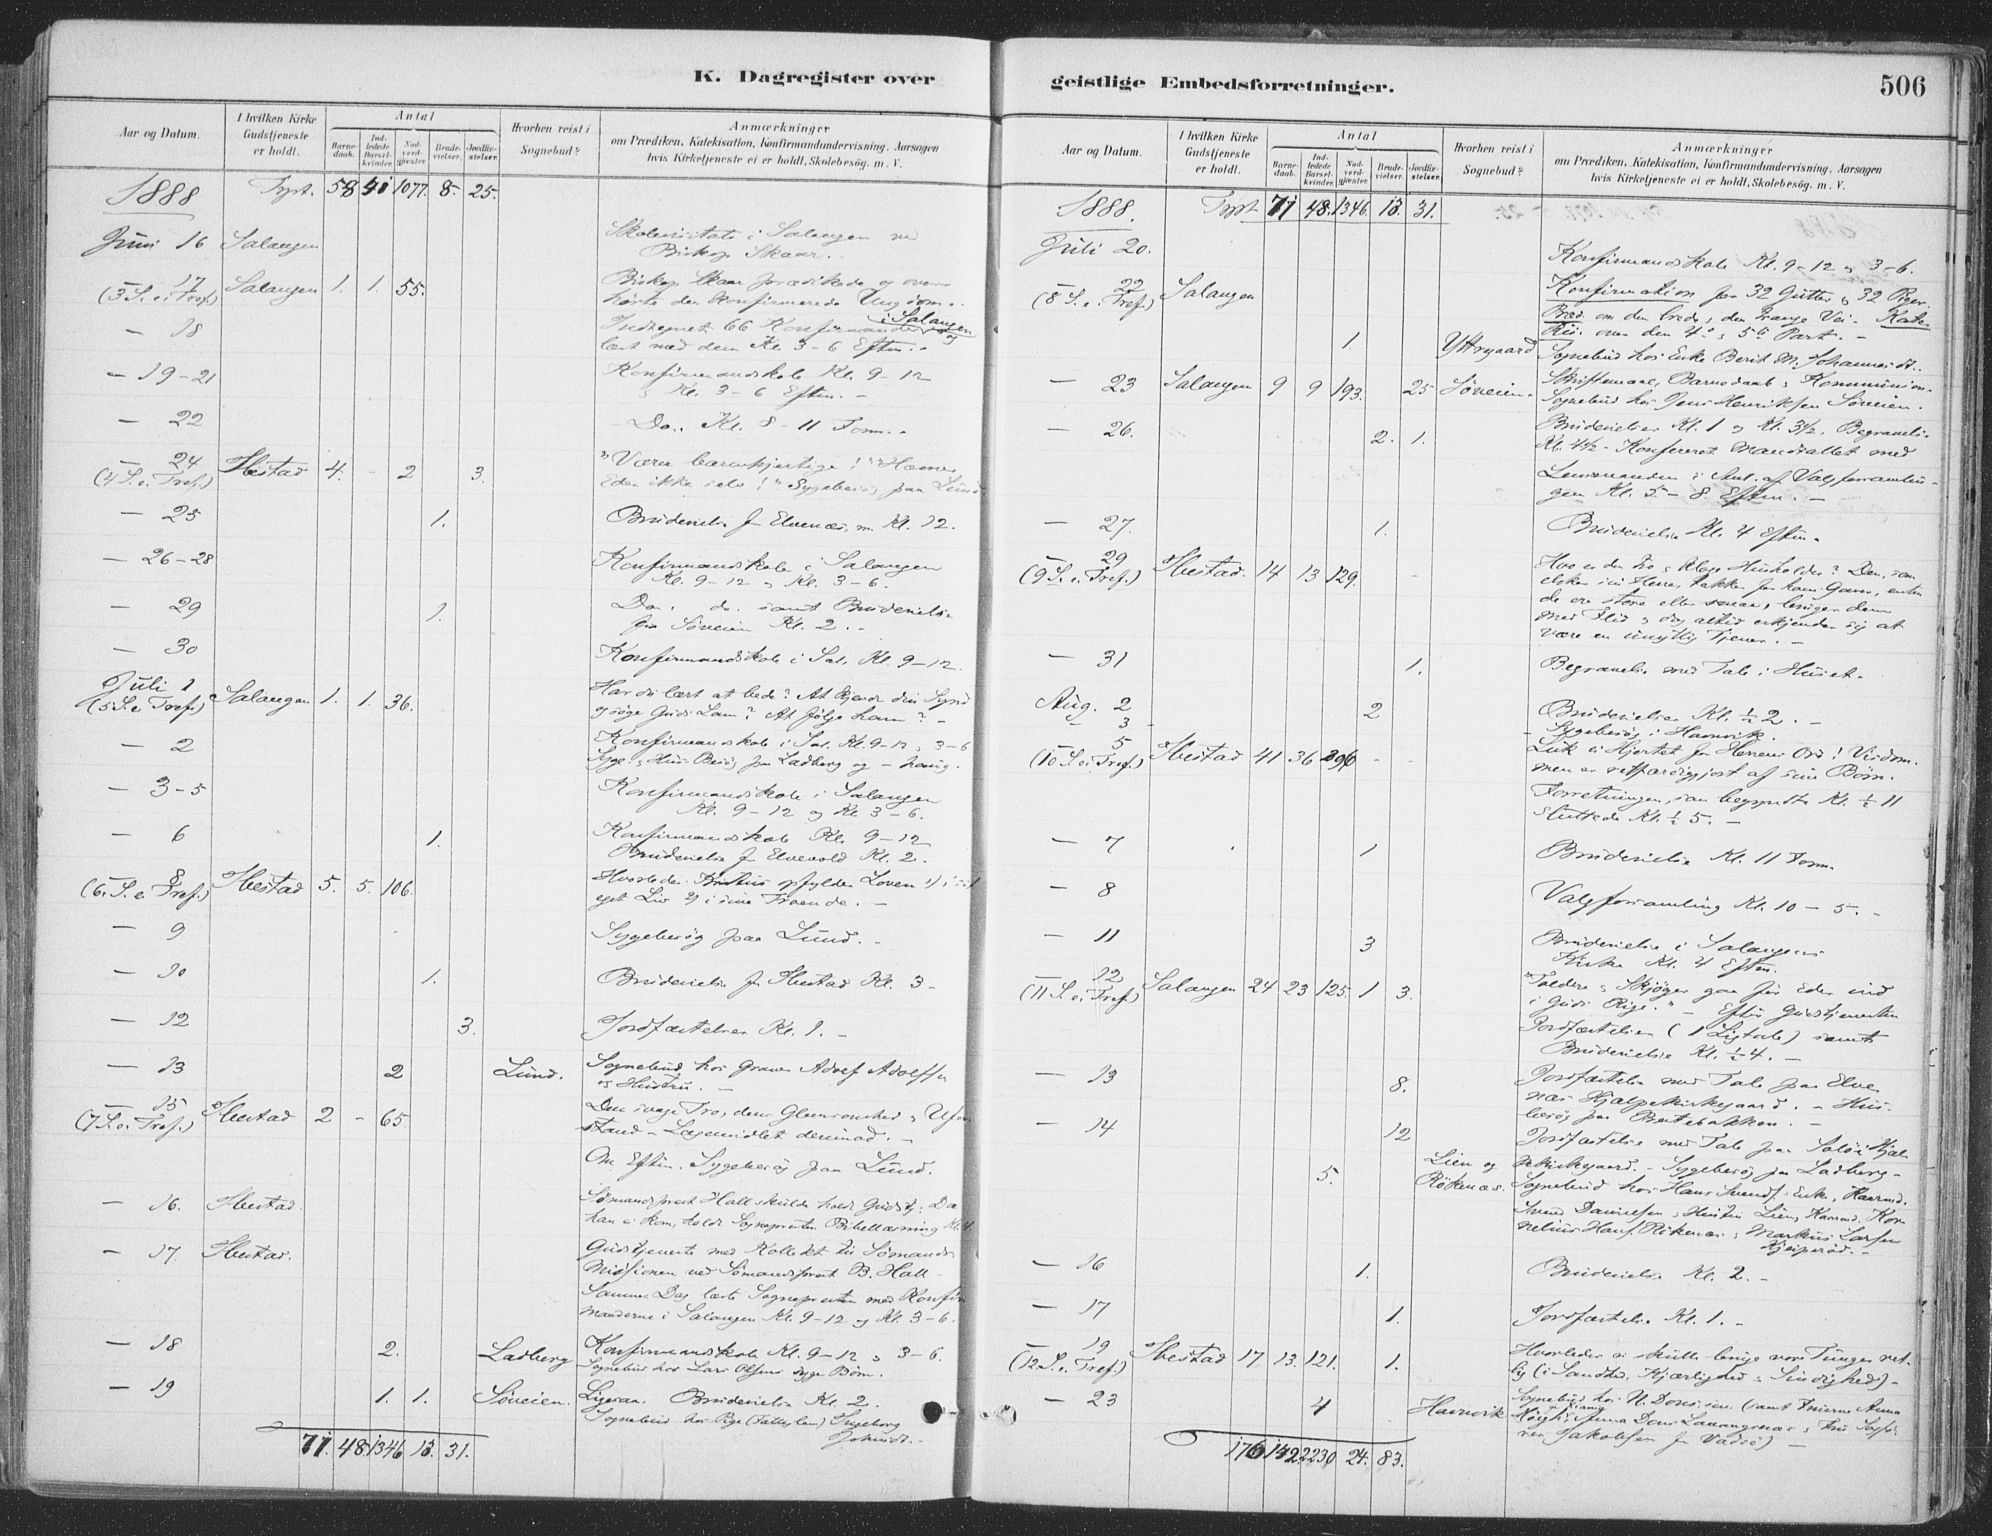 K. Dagregister over
Aar og Datum.
I hvilken Kirke Gudstjeneste er holdt.
Antal
Barnedaab.
Indledede Barselkvinder.
Nadverdgjæster.
Brudevielser.
Jordfæstelser.
Hvorhen reist i Sognebud?
Anmærkninger
om Prædiken, Katekisation, Konfirmandundervisning, Aarsagen
hvis Kirketjeneste ei er holdt, Skolebesøg. m. V.
1888 Tpt. 58 1077. 8. 25.
Juni 16 Salangen Skolevisitats i Salangen ved
Biskop Skaar.
17 (3 S. e. Tref.) Salangen 1. 1. 55. Biskop Skaar prædikede og over
hørte den konfirmerede Ungdom.
— 18 Indtegnet 66 Konfirmander i Salangen og
læst med dem Kl. 3-6 Eftm.
— 19-21 Konfirmandskole Kl. 9-12
& Kl. 3-6 Eftm. -
— 22 Do. Kl. 8-11 Form.
— 24 (4 S. e. Tref.) Ibestad 4. - 2 3. "Værer barmhjertige!" "Hævner
Eder ikke selv!" Sygebesøg paa Lund
— 25 1. Brudevielse fr Elvenæs m. Kl. 12.
— 26-28 Konfirmandskole i Salangen
Kl. 9-12 & Kl. 3-6.
— 29 1. Do. do. samt Brudevielse
fra Søveien Kl. 2. -
— 30 Konfirmandskole i Sal. Kl. 9-12.
Juli 1 (5 S. e. Tref.) Salangen 1. 1. 36. Har du lært at bede? At kjende din Synd
og søge Guds Lam? At følge ham? -
— 2 Konfirmandskole i Sal. Kl. 9-12 & 3-6
Syge & Hus Besøg paa Ladberg og
— 3-5 Konfirmandskole i Salangen
Kl. 9-12 og Kl. 3-6.
— 6 1. Konfirmandskole Kl. 9-12
Brudevielse fr Elvevold Kl. 2.
— 8 (6. S. e. Tref.) Ibestad 5. 5. 106. Hvorledes Kristus opfylder Loven 1) i sit
eget Liv 2) i sine Troende. -
— 9 Sygebesøg paa Lund. -
— 10 1. Brudevielse fr Ibestad Kl. 3 -
— 12 3. Jordfæstelser Kl. 1. -
— 13 2 Lund. Sognebud hos Adolf Adolfsen
og Hustru. -
— 15 (7 S. e. Tref.) Ibestad 2 - 65. Den svage Tro, dens Glemsomhed &
stand - Lægemidlet derimod. -
Om Eftm. Sygebesøg paa Lund.
— 16. Ibestad Sømandsprest Hall skulde holdt Gudstj. Da
han ei kom, holdt Sognepresten Bibellæsning Kl. 4.
— 17. Ibestad. Gudstjeneste med Kollekt til Sømands
Missionen ved Sømandsprest B. Hall -
Samme Dag læste Sognepresten med Konfir
manderne i Salangen Kl. 9-12 og Kl. 3-6.
— 18 2. Ladberg Konfirmandskole Kl. 9-12 & 3-6.
Sognebud hos Lars Olsens syge Børn.
— 19 1. 1. Søveien. Ligesaa. Brudevielse Kl. 2.
Sognebud hos Pige Ingeborg
71. 48. 1346 13. 31.
geistlige Embedsforretninger.
506
Aar og Datum.
I hvilken Kirke Gudstjeneste er holdt.
Antal
Barnedaab.
Indledede Barselkvinder.
Nadverdgjæster.
Brudevielser.
Jordfæstelser.
Hvorhen reist i Sognebud?
Anmærkninger
om Prædiken, Katekisation, Konfirmandundervisning, Aarsagen
hvis Kirketjeneste ei er holdt, Skolebesøg. m. V.
1888. Tpt 71 48. 1346. 13. 31.
Juli 20. Konfirmandskole Kl. 9-12 & 3-6.
— 22 (8 S. e. Tref.) Salangen Konfirmation for 32 Gutter & 32 Piger.
Præd. om den brede & den trange Vei. Kate
kis. over den 4de & 5te Part. -
1. Sognebud hos Enke Berit M. Johannesdt.
— 23 Salangen 9 9 193. 25 Søveien. Skriftemaal, Barnedaab & Kommunion.
Sognebud hos Jens Henriksen Søveien.
— 26. 2. 1. Brudevielser Kl. 1 og Kl. 3½. Begravelse
Kl. 4½ - Konfereret Mandtallet med
Lensmanden i Anl. af Valgforsamlin-
gen Kl. 5-8 Eftm. -
— 27. 1. Brudevielse Kl. 4 Eftm.
— 29 (9 S. e. Tref.) Ibestad. 14 13 129. Hvo er den tro & kloge Husholder? Den, som
elsker sin Herre, takker for hans Gaver, enten
de ere store eller smaa, bruger dem
med Flid & dog altid erkjender sig at
være en unyttig Tjener. -
— 31 1. Begravelse med Tale i Huset.
Aug. 2 2 Brudevielser Kl. ½ 2. -
— 3 - Sygebesøg i Havnvik.
— 5 (10 S. e. Tref.) Ibestad 41 36 296 Luk ei Hjertet for Herrens Ord! Visdom-
men er retfærdiggjort af sine Børn.
Forretningen, som begyndte Kl. ½ 11
sluttede Kl. ½ 5. -
— 7 1 Brudevielse Kl. 11 Form.
— 8 Valgforsamling Kl. 10-5. -
— 11 3 Brudevielse i Salangens
Kirke Kl. 4 Eftm.
— 12 (11 S. e. Tref.) Salangen 24 23 125. 1 3. "Toldere & Skjøger gaa før Eder ind
i Guds Rige." - Efter Gudstjenesten
Jordfæstelser (1 Ligtale) samt
Brudevielse Kl. ½ 4. -
— 13 8. Jordfæstelse med Tale paa Elve
næs Hjælpekirkegaard. - Hus-
besøg paa
— 14 12 Jordfæstelse med Tale paa Hjæl
pekirkegaard. - Sygebesøg paa Ladberg -
5. Lien og Røkenæs. Sognebud hos Hans Enke, Kaarmd.
Daniels. & Hustru Lien, Kaarmd. Kor
nelius Hans. Røkenæs & Markus Larsen
— 16 1. Brudevielse Kl. 2. -
— 17 1. Jordfæstelse Kl. 1. -
— 19 (12 S. e. Tref.) Ibestad 17 13. 121. 1. Hvorledes vi skulle bruge vore Tunger ret-
lig (i Sandhed, Kjærlighed & Sindighed) -
— 23 4 Havnvik Sognebud hos
176 142 2230 24. 83.